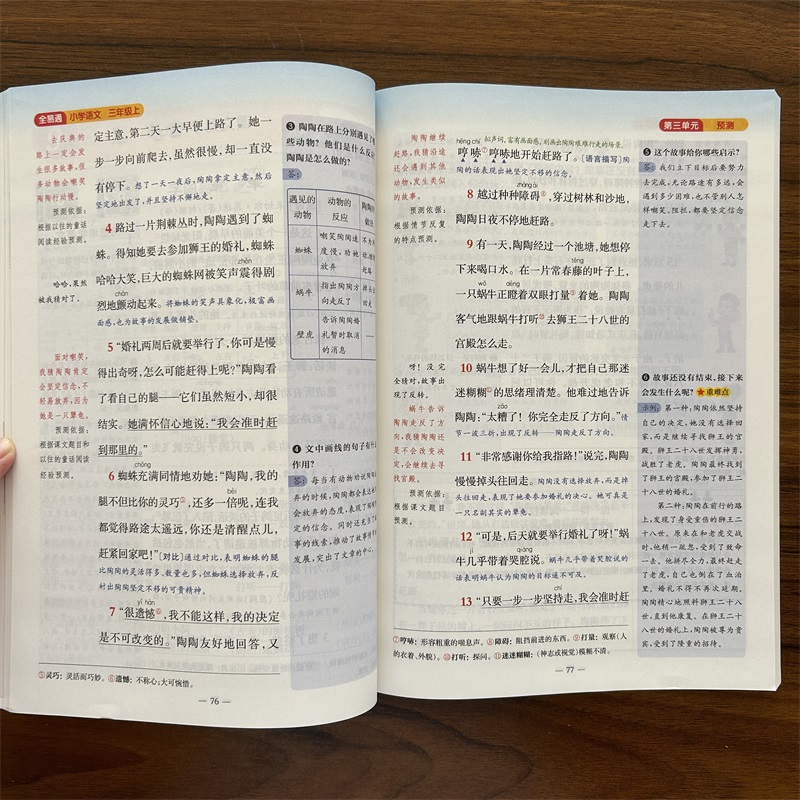 全易通 小学语文 三年级上
去庆典的
路上一定会发
生很多故事，但
多动物会嘲笑
陶陶行动慢。
预测依据：
根据以往的童话
阅读经验预测。
哈哈，果然
被我猜对了。
面对嘲笑，
我猜陶陶肯定
会坚定信念，不
轻易放弃，因为
她是一只犟龟。
预测依据：
根据课文题目和
以往的童话阅读
经验预测。
定主意，第二天一大早便上路了。她一
步一步向前爬去，虽然很慢，却一直没
有停下。想了一天一夜后，陶陶拿定主意，然后
坚定地出发了，并且坚持不懈地走。
4 路过一片荆棘丛时，陶陶遇到了蜘
蛛。得知她要去参加狮王的婚礼，蜘蛛
zhèn
哈哈大笑，巨大的蜘蛛网被笑声震得剧
chàn
烈地颤动起来。将蜘蛛的笑声具象化，极富画
面感，也为故事的发展做铺垫。
5 “婚礼两周后就要举行了，你可是慢
得出奇呀，怎么可能赶得上呢？”陶陶看
了看自己的腿——它们虽然短小，却很
结实。她满怀信心地说：“我会准时赶
到那里的。”
chōng
6 蜘蛛充满同情地劝她：“陶陶，我的
bèi
腿不但比你的灵巧⑤，还多一倍呢，连我
都觉得路途太遥远，你还是清醒点儿，
赶紧回家吧！”[对比]通过对比，表明蜘蛛的腿
比陶陶的灵活得多、数量也多，但蜘蛛选择放弃，反
衬出陶陶坚定不移的可贵精神。
yí hàn
7 “很遗憾⑥，我不能这样，我的决定
是不可改变的。”陶陶友好地回答，又
⑤灵巧：灵活而巧妙。⑥遗憾：不称心；大可惋惜。
— 76 —
3 陶陶在路上分别遇见了
些动物？他们是什么反
陶陶是怎么做的？
答：
遇见的动物 动物的反应 陶陶的
蜘蛛 嘲笑陶陶速度慢，劝她放弃
蜗牛 指出陶陶方向走反了
壁虎 告诉陶陶婚礼暂时取消的消息 ——
4 文中画线的句子有什
作用？
答：每当有动物劝说陶陶
弃的时候，陶陶都会表达
会放弃的态度，表现了陶
定的信念。同时还充当了
事的线索，推动了故事情
发展，突出了文章的中心。
第三单元 预测
陶陶继续
赶路，我猜她途
还会遇到其他
动物，发生类似
的故事。
预测依据：
根据情节反复
的特点预测。
呀！没完
全猜对，故事出
现了反转。
蜗牛告诉
陶陶走反了方
向，我猜陶陶还
是不会改变决
定，会继续去寻
找宫殿。
预测依据：
根据课文题目
预测。
hēng chī 拟声词，富有画面感，刻画出陶陶艰难行走的场景。
哼哧⑦哼哧地开始赶路了。[语言描写]陶
陶的话表现出她坚定不移的信念。
zhàng ài
8 越过种种障碍⑧，穿过树林和沙地，
陶陶日夜不停地赶路。
9 有一天，陶陶经过一个池塘，她想停
下来喝口水。在一片常春藤的叶子上，
wō dèng
一只蜗牛正瞪着双眼打量⑨着她。陶陶
客气地跟蜗牛打听⑩去狮王二十八世的
宫殿怎么走。
10 蜗牛想了好一会儿，才把自己那迷
迷糊糊⑪的思绪理清楚。他难过地告诉
zāo
陶陶：“太糟了！你完全走反了方向。”情
节一波三折，出现了反转——陶陶走反了方向。
11 “非常感谢你给我指路！”说完，陶陶
慢慢掉头往回走。陶陶没有选择放弃，而是掉
头往回走，表现了她要参加婚礼的决心。她可真是
一只名副其实的犟龟。
12 “可是，后天就要举行婚礼了呀！”蜗
jī qiāng
牛几乎带着哭腔说。蜗牛几乎带着哭腔说的
话表明蜗牛认为陶陶的目标遥不可及。
chí
13 “只要一步一步坚持走，我会准时赶
⑦哼哧：形容粗重的喘息声。⑧障碍：阻挡前进的东西。⑨打量：观察（人
的衣着、外貌）。⑩打听：探问。⑪迷迷糊糊：（神志或视觉）模糊不清。
— 77 —
5 这个故事给你哪些启示？
答：我们立下目标后要努力
去完成，无论路途有多远，会
遇到多少困难，也不管别人怎
样嘲笑、阻拦，都要坚定信念
走下去。
6 故事还没有结束，接下来
会发生什么呢？★重难点
示例：第一种：陶陶依然坚持
自己的决定，她没有选择回
家，而是继续寻找狮王的宫
殿。狮王二十八世发挥神勇，
战胜了老虎。陶陶最终找到
了狮王的宫殿，参加了狮王二
十八世的婚礼。
第二种：陶陶在前行的路
上，发现了身受重伤的狮王二
十八世。原来在和老虎交战
时，他稍一疏忽，受到了致命
一击。他拼尽全力，最终赶走
了老虎，自己也倒在了血泊
里。婚礼不得不再次延期。
陶陶精心地照料狮王二十八
世，直到他康复。在狮王二十
八世的婚礼上，陶陶被尊为贵
宾，受到了隆重的招待。